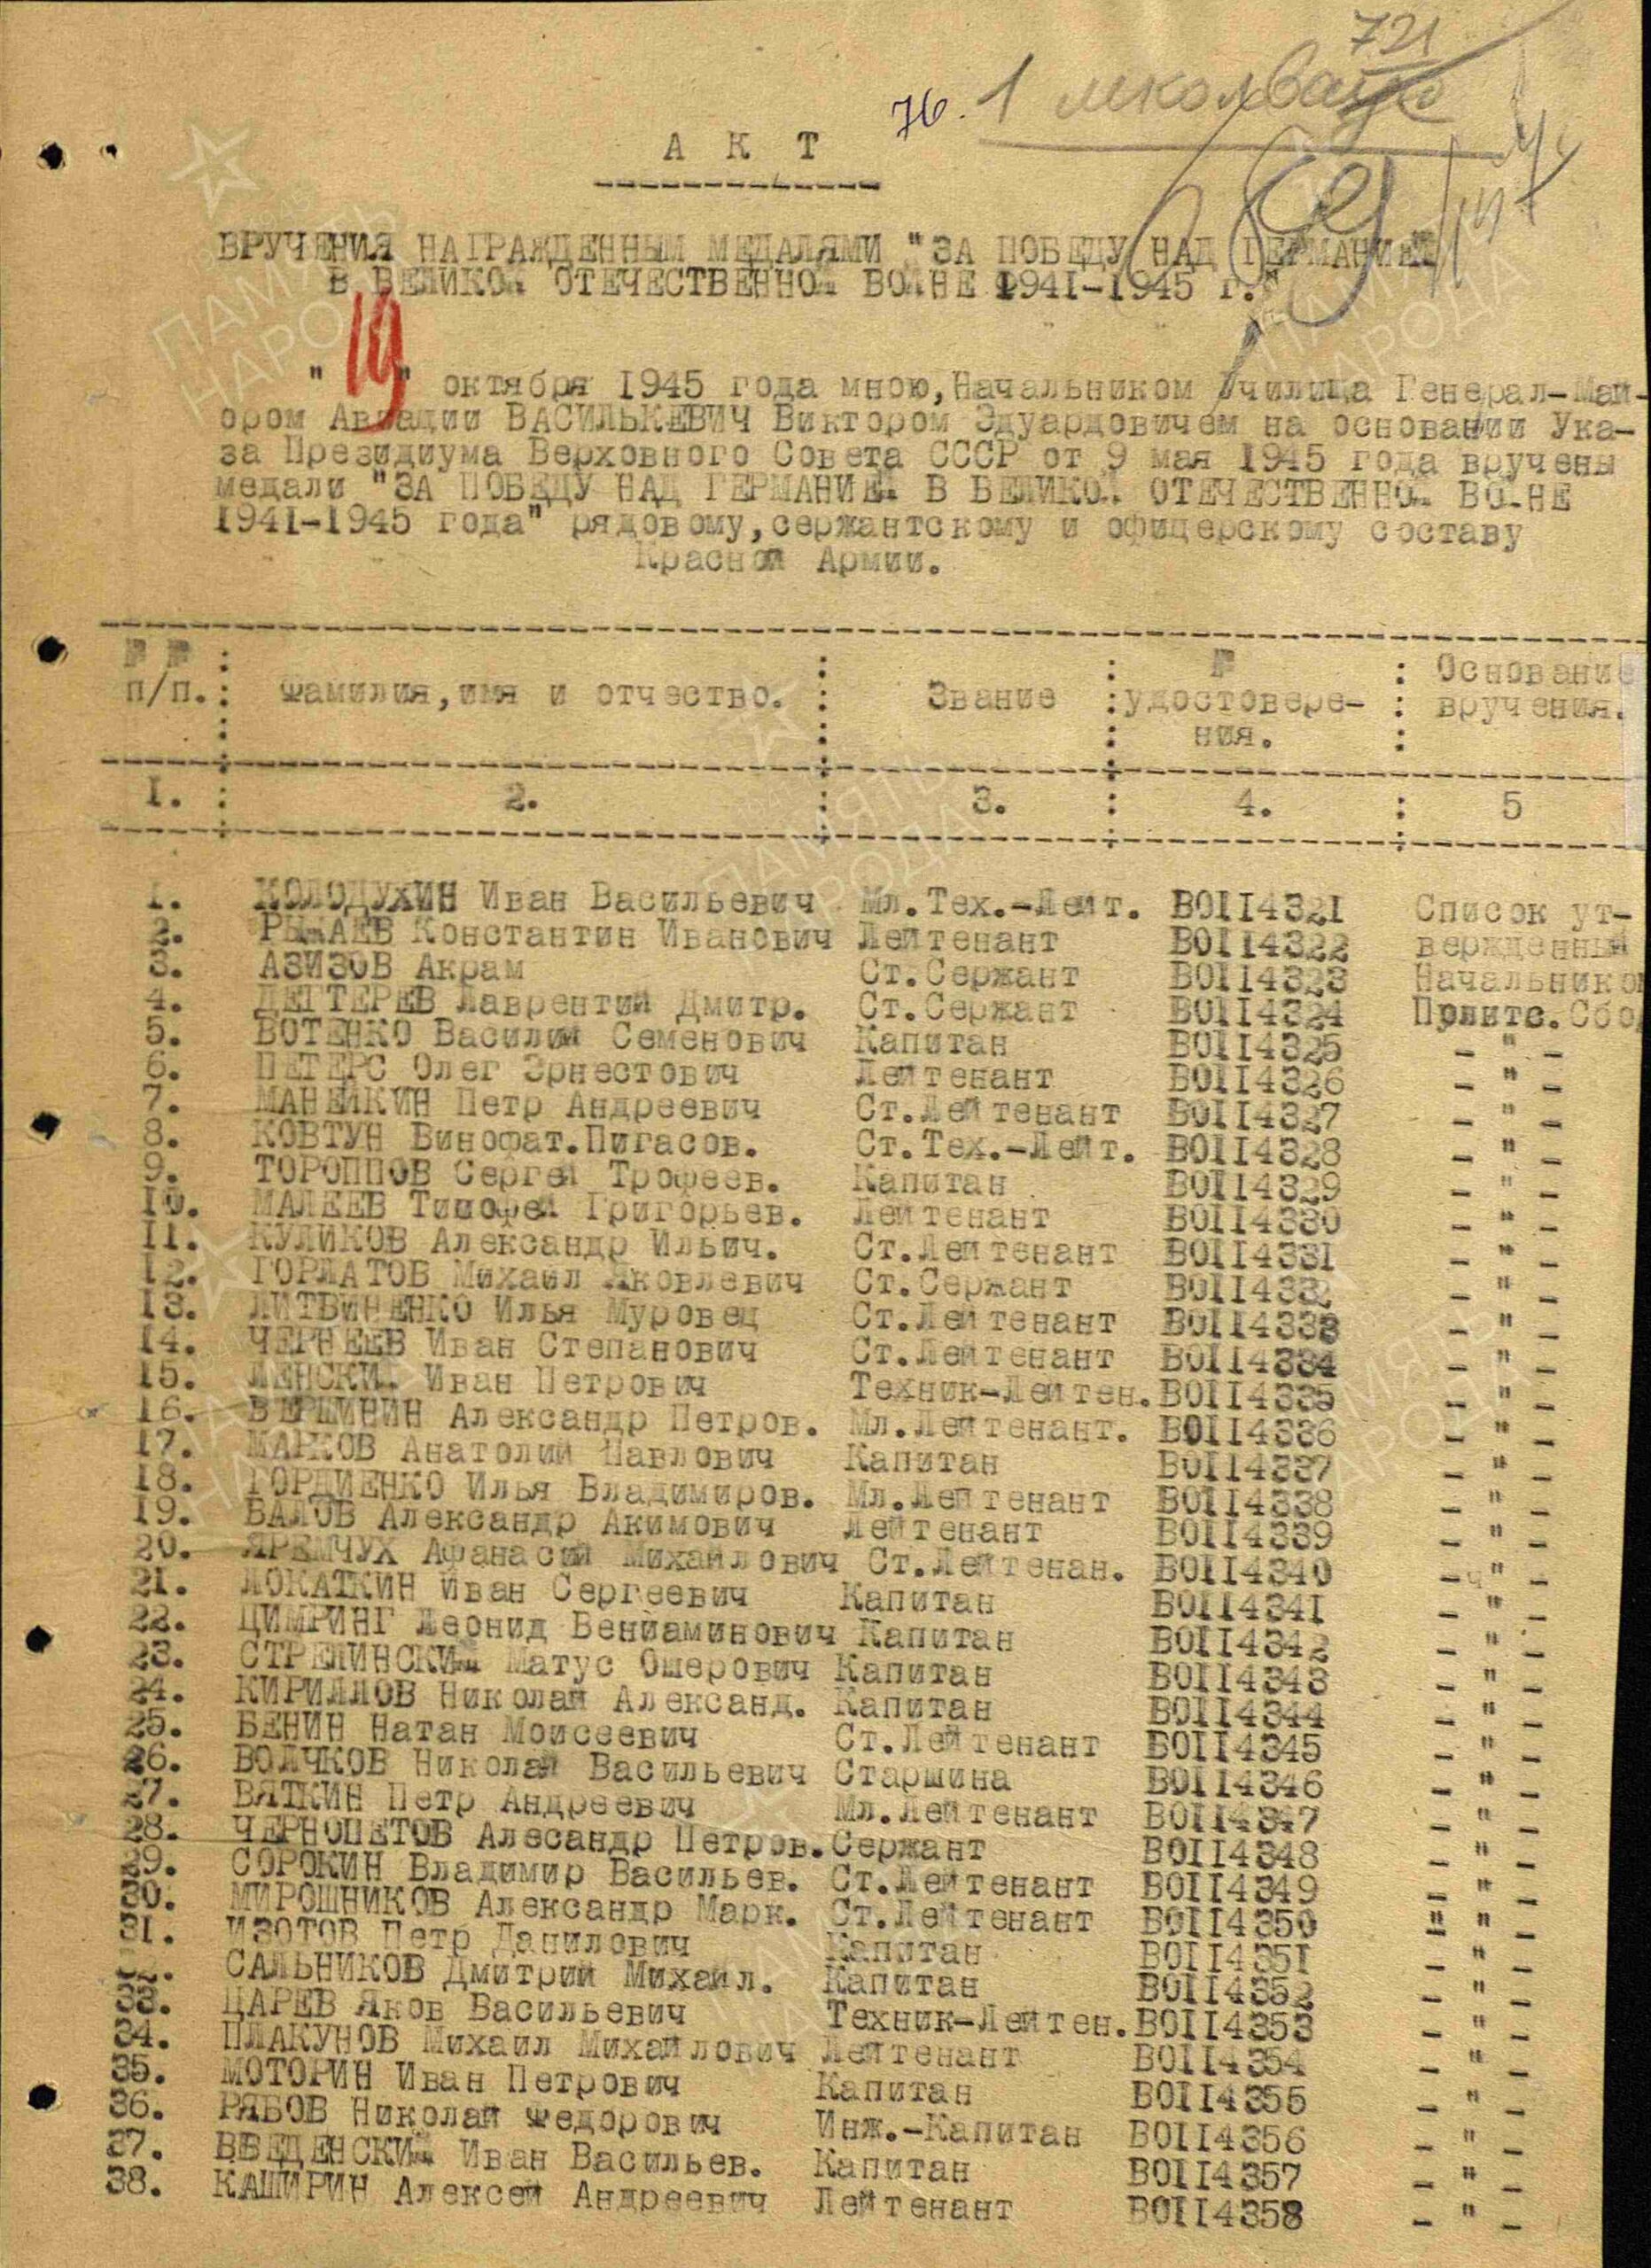 721
76. 1
А К Т
ВРУЧЕНИЯ НАГРАЖДЕННЫМ МЕДАЛЯМИ "ЗА ПОБЕДУ НАД ГЕРМАНИЕЙ
В ВЕЛИКОЙ ОТЕЧЕСТВЕННОЙ ВОЙНЕ 1941-1945 г."
"19" октября 1945 года мною, Начальником Училища Генерал-Май-
ором Авиации ВАСИЛЬКЕВИЧ Виктором Эдуардовичем на основании Ука-
за Президиума Верховного Совета СССР от 9 мая 1945 года вручены
медали "ЗА ПОБЕДУ НАД ГЕРМАНИЕЙ В ВЕЛИКОЙ ОТЕЧЕСТВЕННОЙ ВОЙНЕ
1941-1945 года" рядовому, сержантскому и офицерскому составу
Красной Армии.
№ № : : : № : Основание
п/п. : Фамилия, имя и отчество. : Звание : удостовере- : вручения.
ния.
I. : 2. : 3. : 4. : 5
1. КОЛОДУХИН Иван Васильевич Мл.Тех.-Лейт. ВОII4321 Список ут-
2. РЫЖАЕВ Константин Иванович Лейтенант ВОII4322 вержденный
3. АЗИЗОВ Акрам Ст.Сержант ВОII4323 Начальником
4. ДЕГТЕРЕВ Лаврентий Дмитр. Ст.Сержант ВОII4324
5. ВОТЕНКО Василий Семенович Капитан ВОII4325 - " -
6. ПЕТЕРС Олег Эрнестович Лейтенант ВОII4326 - " -
7. МАНЕЙКИН Петр Андреевич Ст.Лейтенант ВОII4327 - " -
8. КОВТУН Винофат.Пигасов. Ст.Тех.-Лейт. ВОII4328 - " -
9. ТОРОППОВ Сергей Трофеев. Капитан ВОII4329 - " -
10. МАЛЕЕВ Тимофей Григорьев. Лейтенант ВОII4330 - " -
11. КУЛИКОВ Александр Ильич. Ст.Лейтенант ВОII4331 - " -
12. ГОРЛАТОВ Михаил Яковлевич Ст.Сержант ВОII4332 - " -
13. ЛИТВИНЕНКО Илья Муровец Ст.Лейтенант ВОII4333 - " -
14. ЧЕРНЕЕВ Иван Степанович Ст.Лейтенант ВОII4334 - " -
15. ЛЕНСКИЙ Иван Петрович Техник-Лейтен. ВОII4335 - " -
16. ВЕРЕМИНИН Александр Петров. Мл.Лейтенант. ВОII4336 - " -
17. МАРКОВ Анатолий Павлович Капитан ВОII4337 - " -
18. ГОРДИЕНКО Илья Владимиров. Мл.Лейтенант ВОII4338 - " -
19. ВАЛОВ Александр Акимович Лейтенант ВОII4339 - " -
20. ЯРЕМЧУХ Афанасий Михайлович Ст.Лейтенан. ВОII4340 - " -
21. ЛОКАТКИН Иван Сергеевич Капитан ВОII4341 - " -
22. ЦИМРИНГ Леонид Вениаминович Капитан ВОII4342 - " -
23. СТРЕЛИНСКИЙ Матус Ошерович Капитан ВОII4343 - " -
24. КИРИЛЛОВ Николай Александ. Капитан ВОII4344 - " -
25. БЕНИН Натан Моисеевич Ст.Лейтенант ВОII4345 - " -
26. ВОЛЧКОВ Николай Васильевич Старшина ВОII4346 - " -
27. ВЯТКИН Петр Андреевич Мл.Лейтенант ВОII4347 - " -
28. ЧЕРНОПЕТОВ Алесандр Петров. Сержант ВОII4348 - " -
29. СОРОКИН Владимир Васильев. Ст.Лейтенант ВОII4349 - " -
30. МИРОШНИКОВ Александр Марк. Ст.Лейтенант ВОII4350 " " -
31. ИЗОТОВ Петр Данилович Капитан ВОII4351 - " -
32. САЛЬНИКОВ Дмитрий Михаил. Капитан ВОII4352 - " -
33. ЦАРЕВ Яков Васильевич Техник-Лейтен. ВОII4353 - " -
34. ПЛАКУНОВ Михаил Михайлович Лейтенант ВОII4354 - " -
35. МОТОРИН Иван Петрович Капитан ВОII4355 - " -
36. РЯБОВ Николай Федорович Инж.-Капитан ВОII4356 - " -
37. ВВЕДЕНСКИЙ Иван Васильев. Капитан ВОII4357 - " -
38. КАШИРИН Алексей Андреевич Лейтенант ВОII4358 - " -